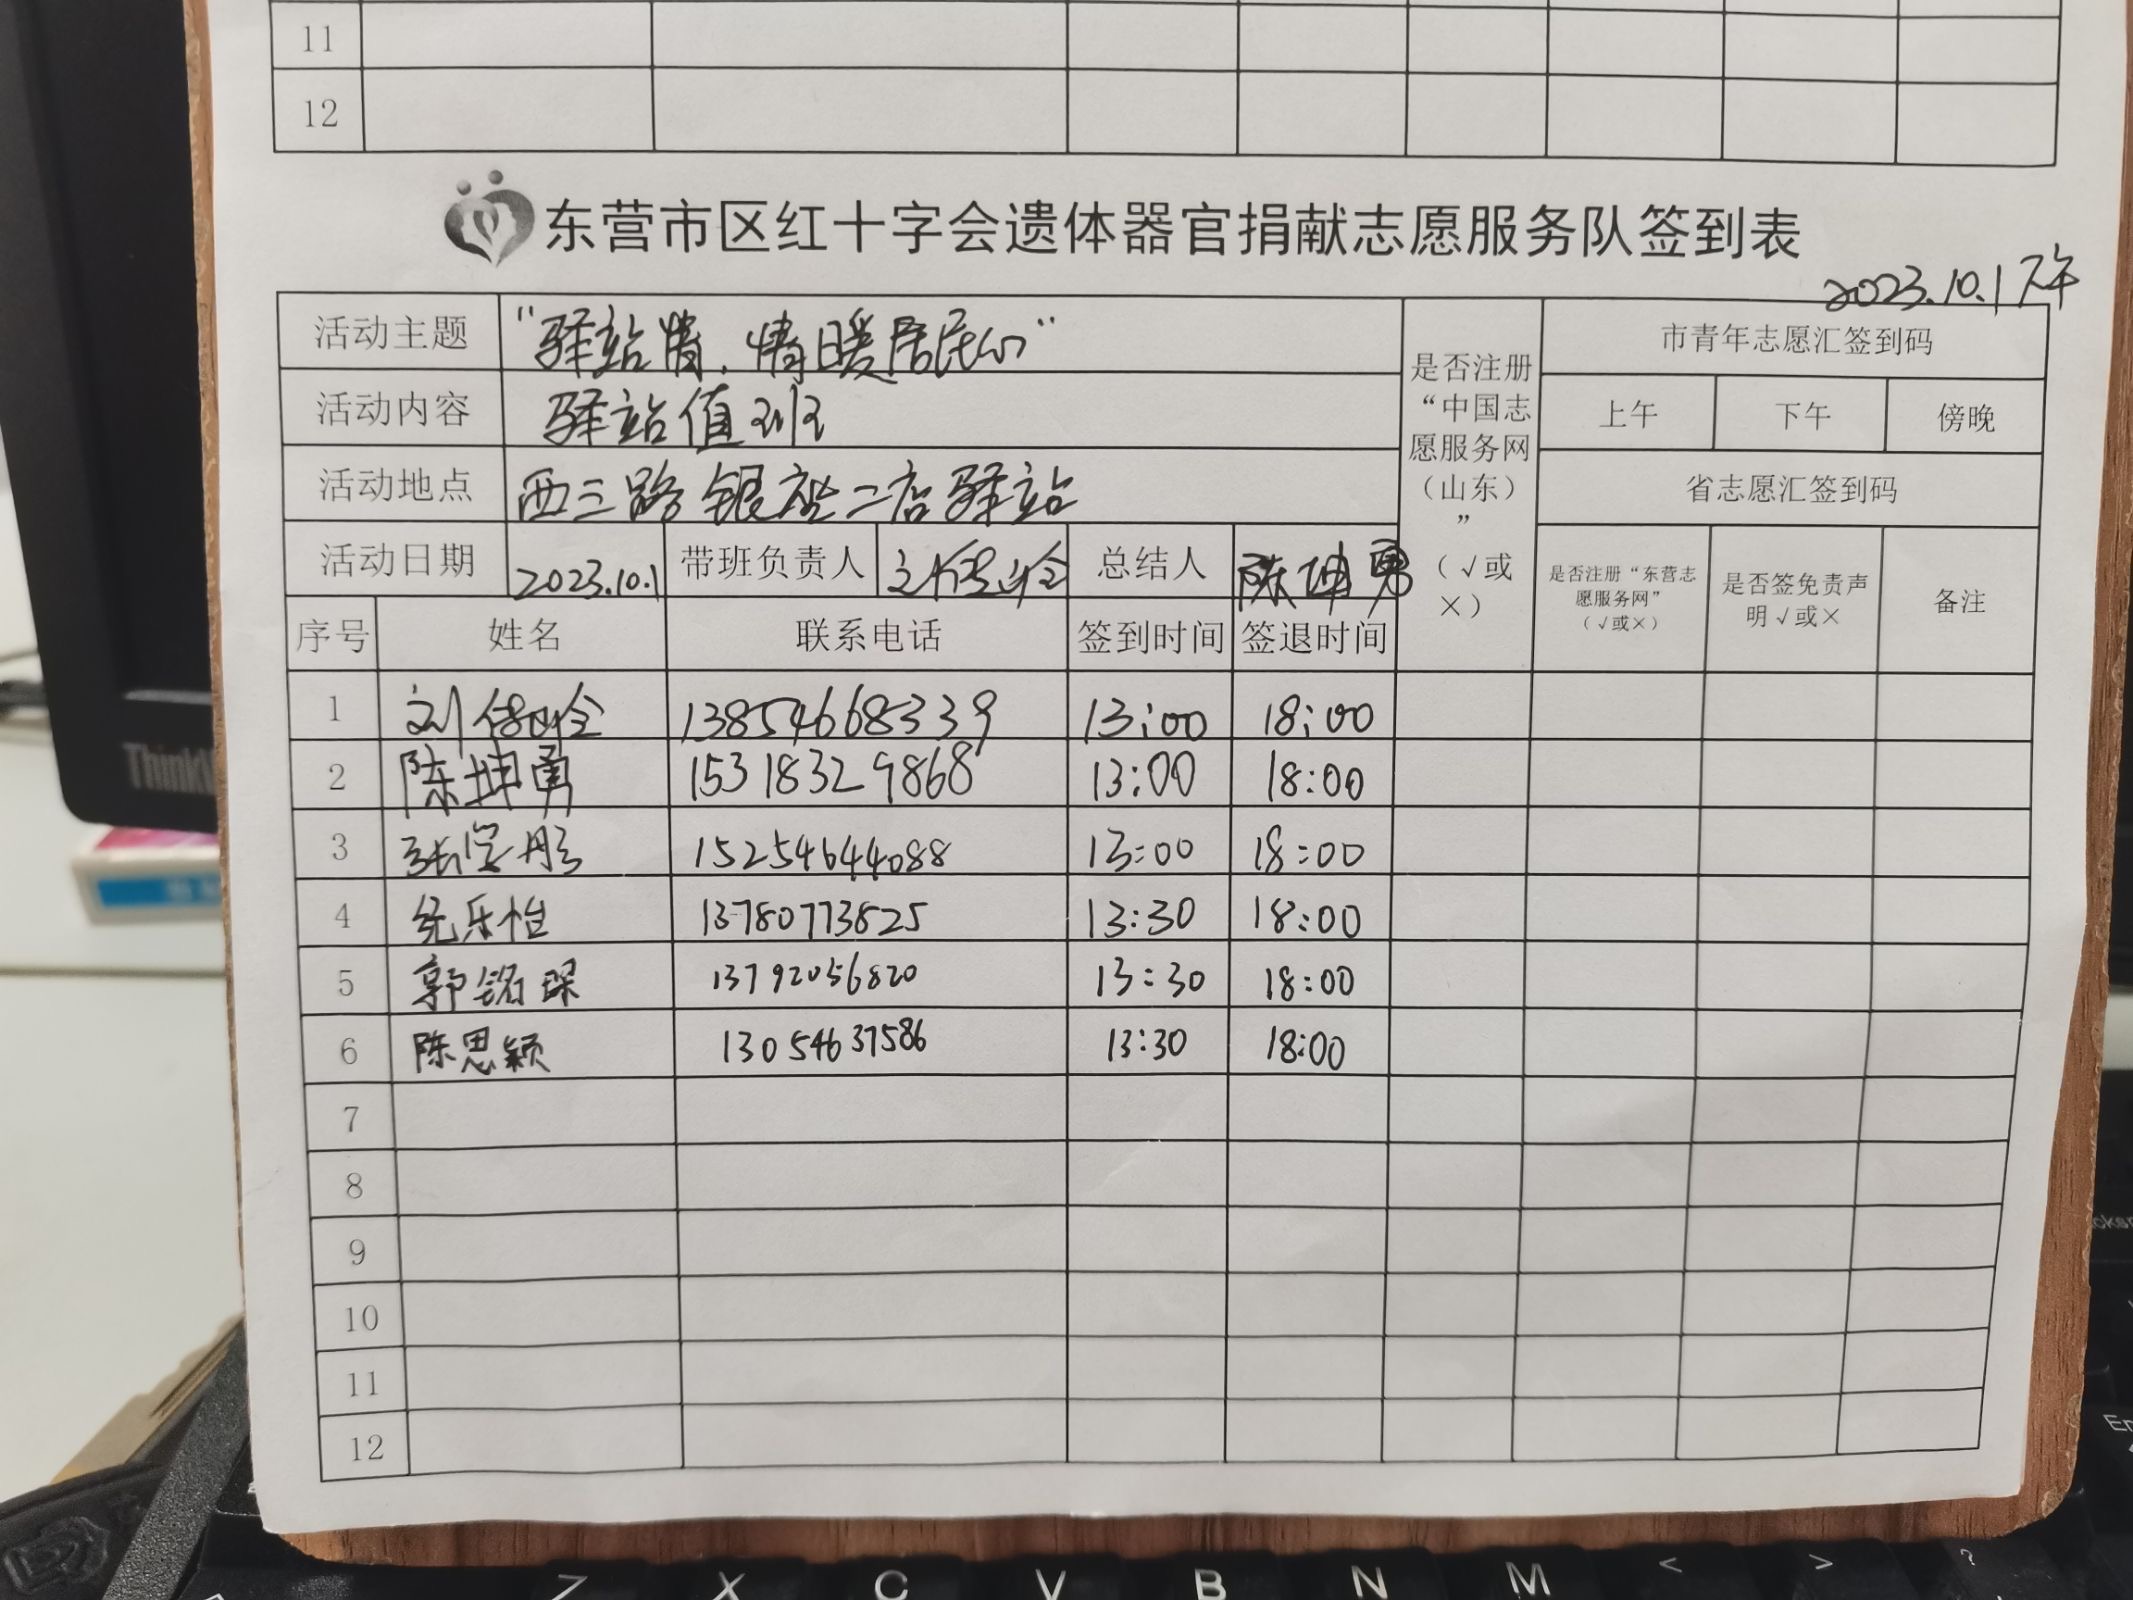 11
12
东营市区红十字会遗体器官捐献志愿服务队签到表
2023.10.1下午
活动主题 "驿站情,情暖居民心"
活动内容 驿站值班
活动地点 西三路银座二店驿站
活动日期 2023.10.1 带班负责人 刘 总结人 陈坤勇
是否注册“中国志愿服务网（山东）”（√或×）
市青年志愿汇签到码
上午 下午 傍晚
省志愿汇签到码
是否注册“东营志愿服务网”（√或×） 是否签免责声明√或× 备注
序号 姓名 联系电话 签到时间 签退时间
1 刘 13854668339 13:00 18:00
2 陈坤勇 15318329868 13:00 18:00
3 张 彤 15254644088 13:00 18:00
4 乐怡 13780773825 13:30 18:00
5 郭铭琛 13792056820 13:30 18:00
6 陈思颖 13054637586 13:30 18:00
7
8
9
10
11
12
Z X C V B N M < > ?